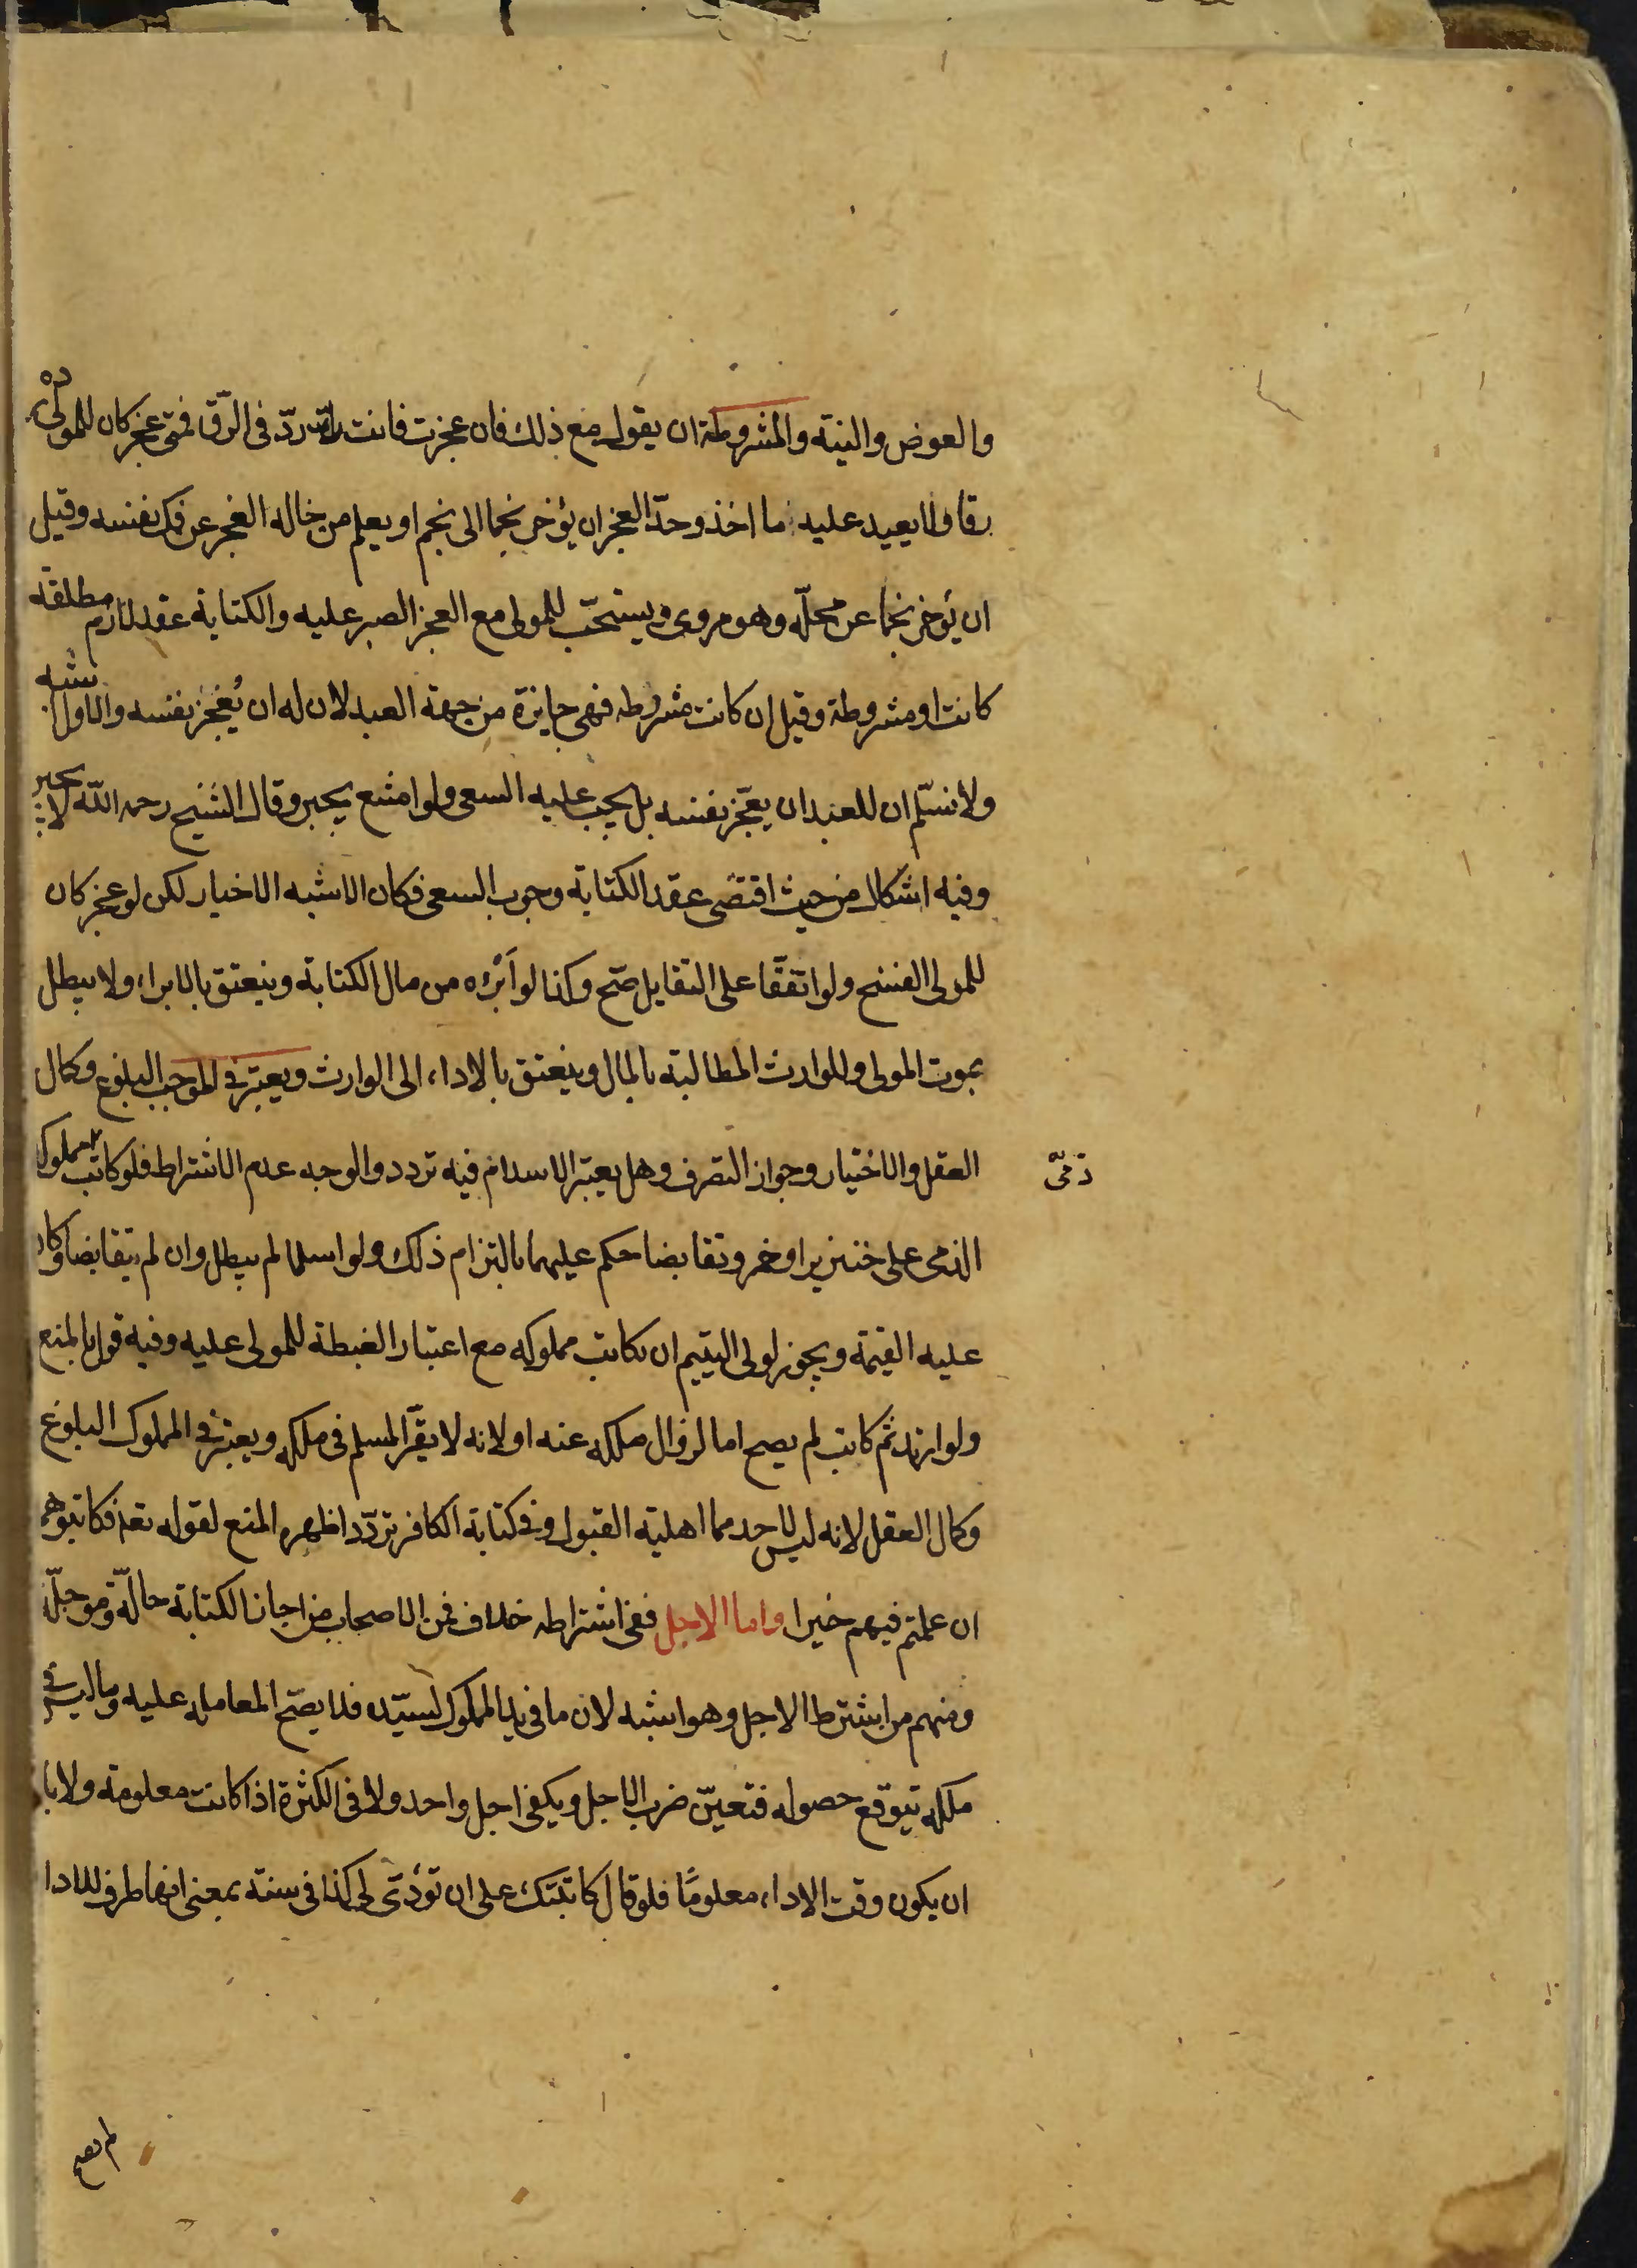 والعوض والنية والمشروطة ان يقول مع ذلك فان عجزت فانت ردّ فى الرّق فمتى عجز كان للمولى ردّه
رقا ولا يعيد عليه ما اخذ وحدّ العجز ان يؤخر نجما الى نجم او يعلم من حاله العجز عن فك نفسه وقيل
ان يؤخر نجما عن محلّه وهو مروى ويستحبّ للمولى مع العجز الصبر عليه والكتابة عقد لازم مطلقة
كانت او مشروطة وقيل ان كانت مشروطه فهى جايزة من جهة العبد لان له ان يُعجز نفسه والاول اشبه
ولا نسلّم ان للعبد ان يعجّز نفسه بل يجب عليه السعى ولو امتنع يجبر وقال الشيخ رحمه اللّه لا يجبر
وفيه اشكال من حيث اقتضى عقد الكتابة وجوب السعى فكان الاشبه الاخبار لكن لو عجز كان
للمولى الفسخ ولو اتفقّا على التقايل صّح وكذا لو اَبرُه من مال الكتابة وينعتق بالابراء ولا يبطل
بموت المولى وللوارث المطالبة بالمال وينعتق بالاداء الى الوارث ويعتبر فى الموجب البلوغ وكمال
العقل والاختيار وجواز التصرف وهل يعتبر الاسلام فيه تردد والوجه عدم الاشتراط فلو كاتب مملوكه
ذمّى
الذمى على خنزير او خمر وتقابضا حكم عليهما بالتزام ذلك ولو اسلما لم يبطل وان لم يتقابضا وكان
عليه القيمة ويجوز لولى اليتيم ان يكاتب مملوكه مع اعتبار الغبطة للمولى عليه وفيه قول بالمنع
ولو ارتد ثم كاتب لم يصح اما لزوال ملكه عنه او لانه لا يقّر المسلم فى ملكه ويعتبر فى المملوك البلوغ
وكمال العقل لانه ليس لاحدهما اهلية القبول وفى كتابة الكافر تردّد اظهره المنع لقوله تعا فكاتبوهم
ان علمتم فيهم خيرا واما الاجل ففى اشتراطه خلاف فمن الاصحاب من اجاز الكتابة حالّة ومؤجلّة
ومنهم من اشترط الاجل وهو اشبه لان ما فى يد المملوك لسيّده فلا يصّح المعامله عليه وما ليس فى
ملكه يتوقع حصوله فتعيّن ضرب الاجل ويكفى اجل واحد ولا فى الكثرة اذا كانت معلومة ولا بد
ان يكون وقت الاداء معلومًا فلو قال كاتبتك على ان تؤدّى لى كذا فى سنة بمعنى انها ظرف للادا
لم يصح